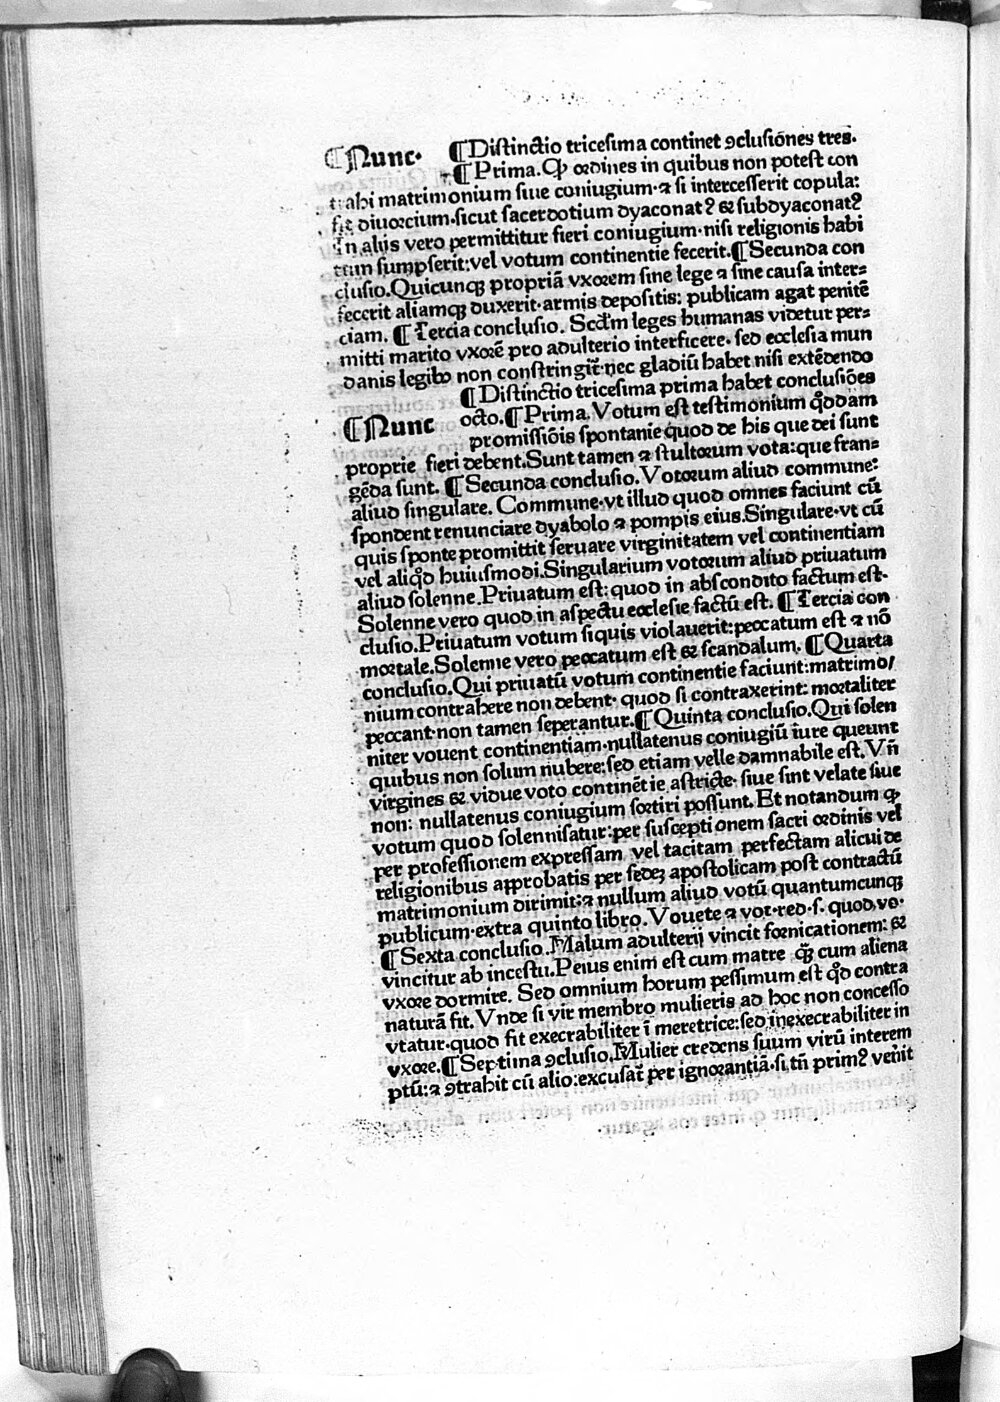 ¶Nunc. ¶Distinctio tricesima continet ꝯclusiōnes tres.
¶Prima. Ꝙ ordines in quibus non potest con
trahi matrimonium siue coniugium·⁊ si intercesserit copula:
fit diuorcium·sicut sacerdotium dyaconatꝰ & subdyaconatꝰ
In aliis vero permittitur fieri coniugium·nisi religionis habi
tum sumpserit:vel votum continentie fecerit.¶Secunda con
clusio.Quicunqꝫ propriā vxorem sine lege ⁊ sine causa inter⸗
fecerit aliamqꝫ duxerit·armis depositis: publicam agat penitē
ciam. ¶Tercia conclusio. Scďm leges humanas videtur per⸗
mitti marito vxorē pro adulterio interficere· sed ecclesia mun
danis legibꝫ non constringit̄·nec gladiū habet nisi extēdendo
¶Distinctio tricesima prima habet conclusiōes
¶Nunc octo.¶Prima.Votum est testimonium qďdam
promissiōis spontanie quod de his que dei sunt
proprie fieri debent.Sunt tamen ⁊ stultorum vota:que fran⸗
gēda sunt. ¶Secunda conclusio.Votorum aliud commune:
aliud singulare. Commune·vt illud quod omnes faciunt cū
spondent renunciare dyabolo ⁊ pompis eius.Singulare·vt cū
quis sponte promittit seruare virginitatem vel continentiam
vel aliqďhuiusmodi.Singularium votorum aliud priuatum
aliud solenne.Priuatum est:quod in abscondito factum est·
Solenne vero quod in aspectu ecclesie factū est. ¶Tercia con
clusio.Priuatum votum siquis violauerit:peccatum est ⁊ nō
mortale.Solenne vero peccatum est & scandalum. ¶Quarta
conclusio.Qui priuatū votum continentie faciunt:matrimo/
nium contrahere non debent· quod si contraxerint: mortaliter
peccant·non tamen seperantur.¶Quinta conclusio.Qui solen
niter vouent continentiam·nullatenus coniugiū iure queunt
quibus non solum nubere:sed etiam velle damnabile est.Vn̄
virgines & vidue voto continētie astricte· siue sint velate siue
non: nullatenus coniugium sortiri possunt. Et notandum ꝙ
votum quod solennisatur:per susceptionem sacri ordinis vel
per professionem expressam vel tacitam perfectam alicui de
religionibus approbatis per sedeꝫ apostolicam post contractū
matrimonium dirimit:⁊ nullum aliud votū quantumcunqꝫ
publicum·extra quinto libro.Vouete ⁊ vot·red·s. quod·vo·
¶Sexta conclusio.Malum adulterij vincit fornicationem: &
vincitur ab incestu.Peius enim est cum matre qꝫ̄ cum aliena
vxore dormire. Sed omnium horum pessimum est qď contra
naturā fit.Vnde si vir membro mulieris ad hoc non concesso
vtatur·quod fit execrabiliter ī meretrice:sed inexecrabiliter in
vxore.¶Septima ꝯclusio.Mulier credens suum virū interem
ptū:⁊ ꝯtrahit cū alio:excusat̄ per ignorantiā·si tn̄ primꝰ venit